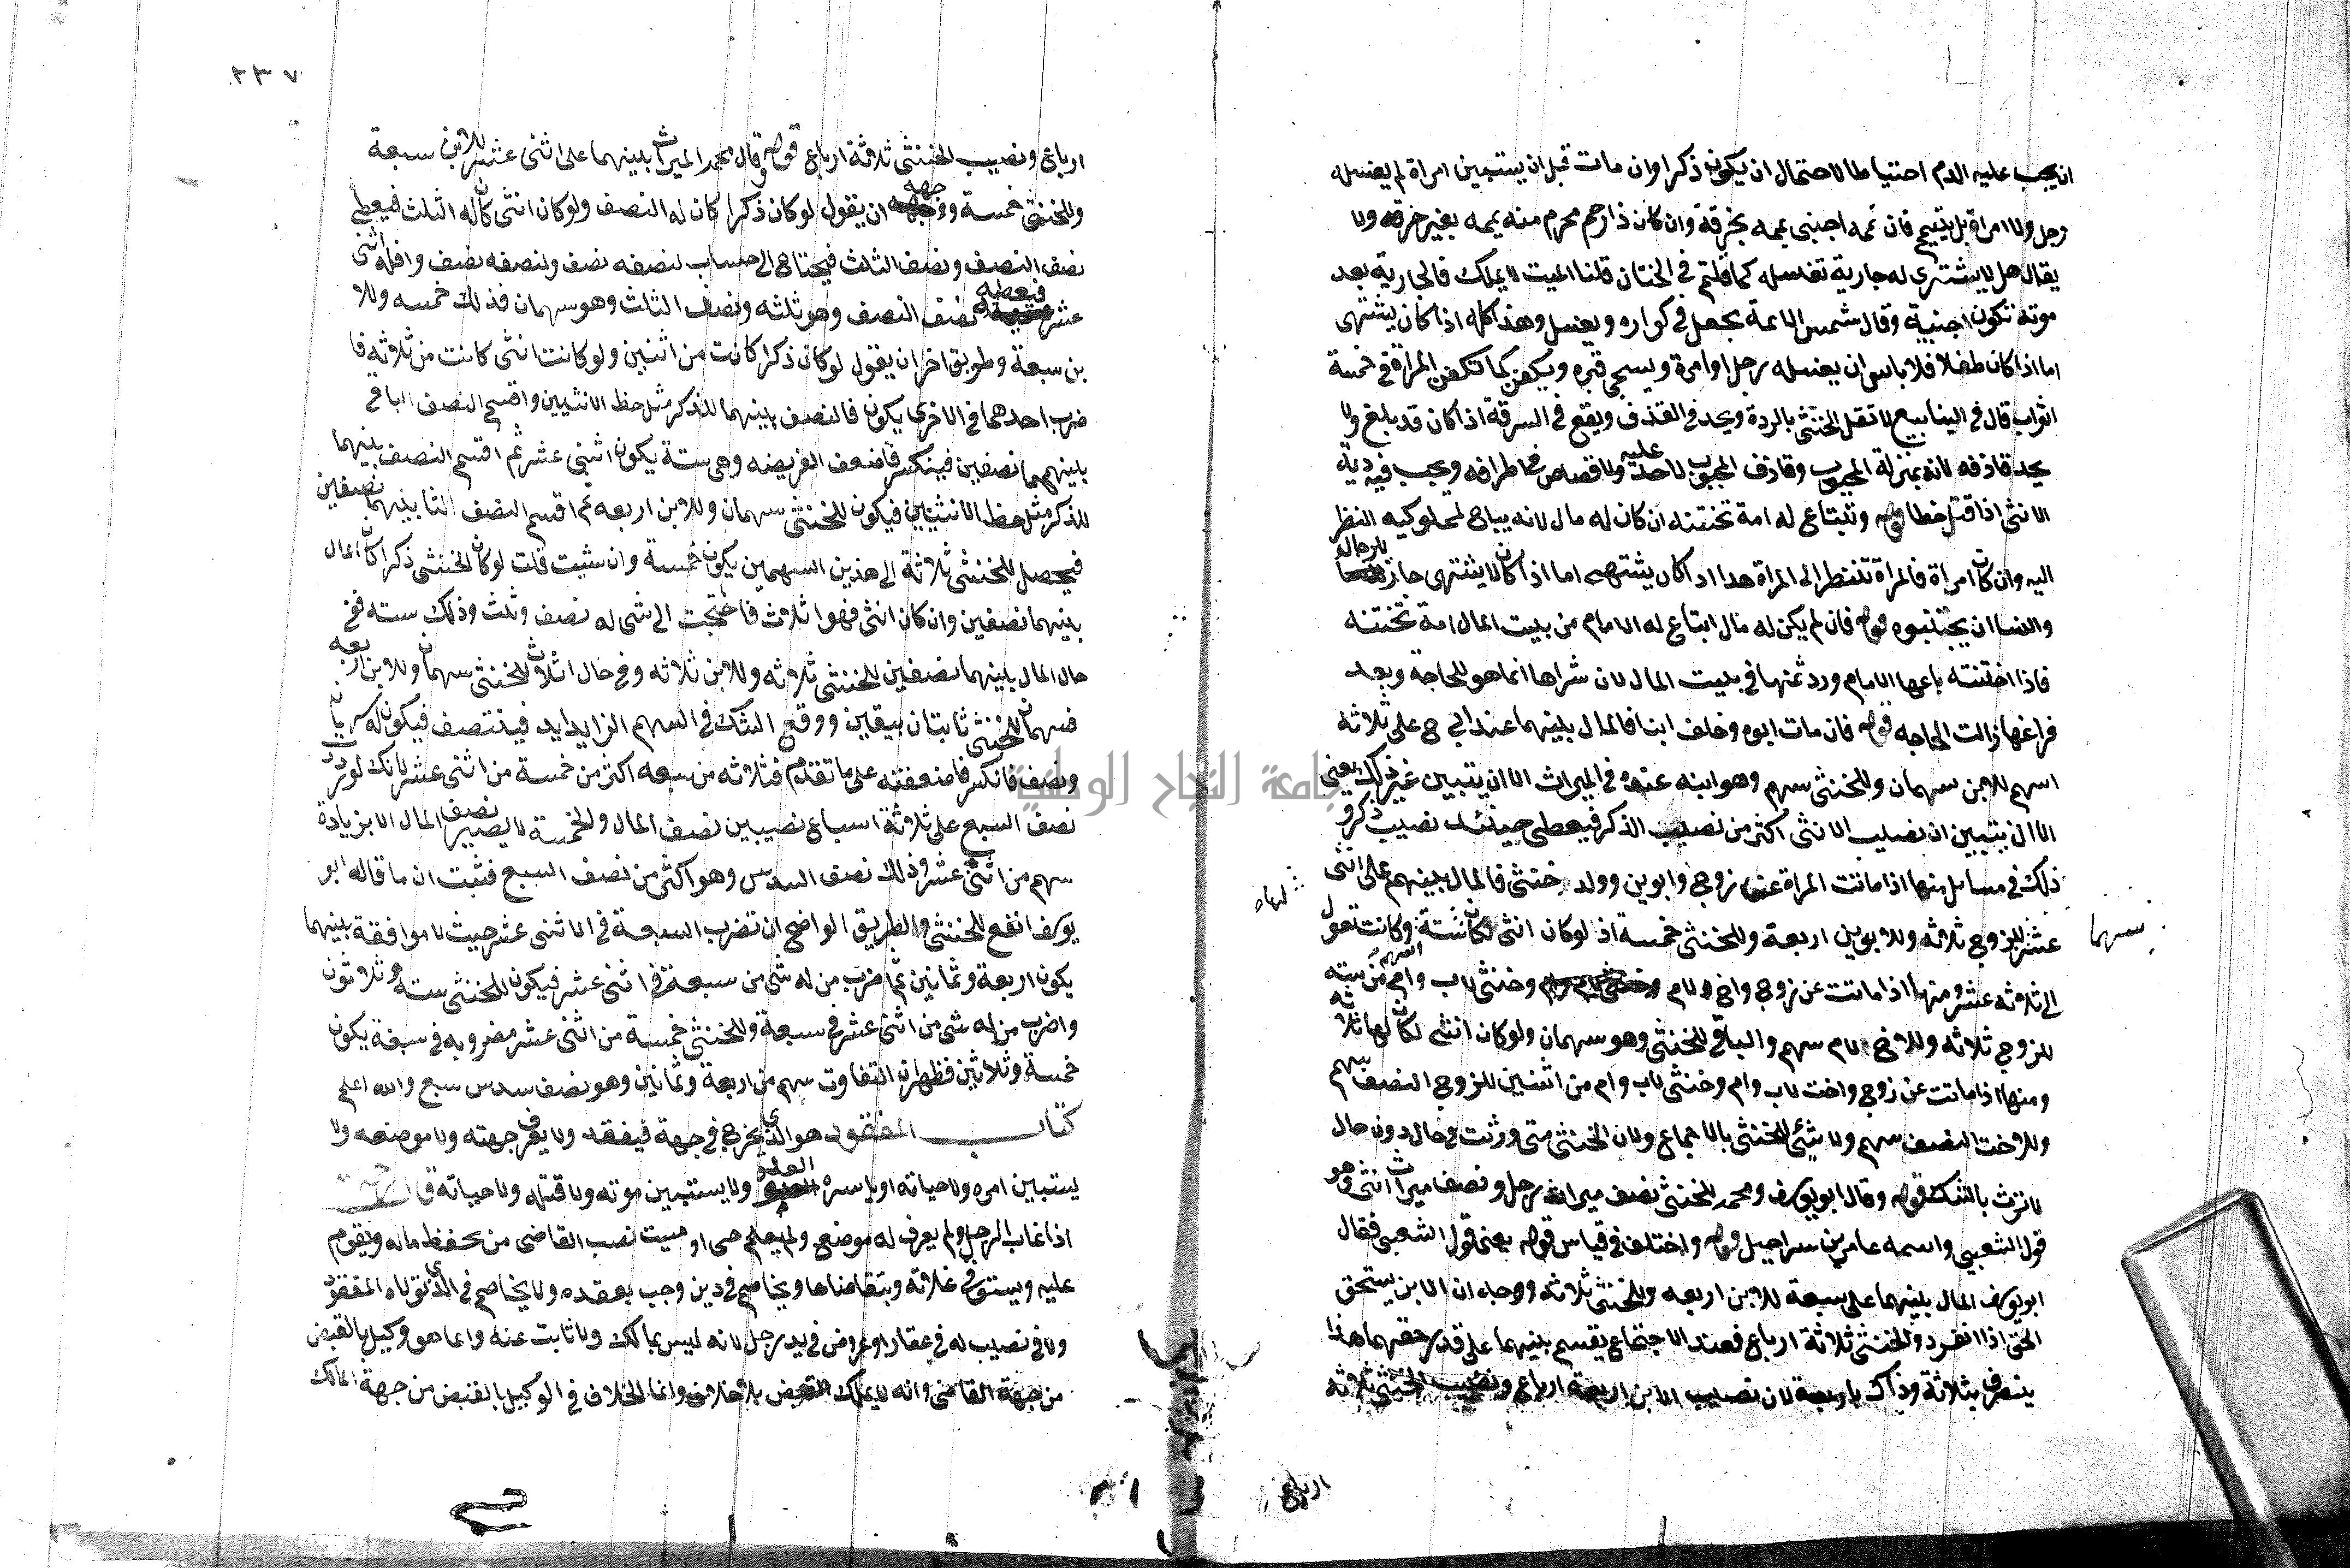 ان يجب عليه الدم احتياطا لاحتمال ان يكون ذكرا وان مات قبل ان يستبين امراة لم يغسله
رجل ولا امراة بل يتيمم فان يممه اجنبي يممه بخرقة وان كان ذا رحم محرم منه يممه بغير خرقة ولا
يقال هل لا يشترى له جارية تغسله كما قلتم في الختان قلنا الميت لا يملك فالجارية بعد
موته تكون اجنبية وقال شمس الائمة يجعل في كواره ويغسل وهذا كله اذا كان يشتهى
اما اذا كان طفلا فلا باس ان يغسله رجل او امرة ويسجى قبره ويكفن كما تكفن المراة في خمسة
اثواب قال في الينابيع لا تقتل الخنثى بالردة ويحد في القذف ويقع في السرقة اذا كان قد بلغ ولا
يحد قاذفه لانه بمنزلة المجبوب وقاذف المجبوب لا حد عليه ولا قصاص في اطرافه ويجب فيه دية
الانثى اذا قتل خطا قوله وتبتاع له امة تختنه ان كان له مال لانه يباح لمملوكيه النظر
اليه وان كان امراة فالمراة تنظر الى المراة هذا اذا كان يشتهى اما اذا كان لا يشتهى جاز للرجال
والنسا ان يختنوه قوله فان لم يكن له مال ابتاع له الامام من بيت المال امة تختنه
فاذا اختنته باعها الامام ورد ثمنها في بيت المال لان شراها انما هو للحاجة وبعد
فراغها زالت الحاجه قوله فان مات ابوه وخلف ابنا فالمال بينهما عند ابي ح على ثلاثة
اسهم للابن سهمان وللخنثى سهم وهو ابنه عنده في الميراث الا ان يتبين غير ذلك يعني
الا ان يتبين ان نصيب الانثى اكثر من نصيب الذكر فيعطى حينئذ نصيب ذكر و
ذلك في مسايل منها اذا ماتت المراة عن زوج وابوين وولد خنثى فالمال بينهم على اثنى
عشر للزوج ثلاثه وللابوين اربعة وللخنثى خمسة اذ لو كان انثى لكان ستة وكانت تعول
سهما
الى ثلاثه عشر ومنها اذا ماتت عن زوج واخ لام وخنثى لاب وام من سته اسهم
للزوج ثلاثه وللاخ لام سهم والباقي للخنثى وهو سهمان ولو كان انثى لكان لها ثلاثه
ومنها اذا ماتت عن زوج واخت لاب وام وخنثى لاب وام من اثنين للزوج النصف سهم
وللاخت النصف سهم ولا شئ للخنثى بالاجماع ولان الخنثى متى ورثت في حال دون حال
لا ترث بالشك قوله وقال ابو يوسف ومحمد للخنثى نصف ميراث رجل ونصف ميراث انثى وهو
قول الشعبي واسمه عامر بن سراحيل قوله واختلف في قياس قوله يعني قول الشعبي فقال
ابو يوسف المال بينهما على سبعة للابن اربعه وللخنثى ثلاثه ووجهه ان الابن يستحق
الحق اذا انفرد والخنثى ثلاثة ارباع فعند الاجتماع يقسم بينهما على قدر حقهما هذا
يضرف بثلاثة وذاك باربعة لان نصيب الابن اربعة ارباع ونصيب الخنثى ثلاثه
ارباع
٢٣٧
ارباع ونصيب الخنثى ثلاثة ارباع قوله وقال محمد الميراث بينهما على اثنى عشر للابن سبعة
وللخنثى خمسة ووجهه ان يقول لو كان ذكرا كان له النصف ولو كان انثى كان له الثلث فيعطى
نصف النصف ونصف الثلث فيحتاج الى حساب لنصفه نصف ولنصفه نصف واقله اثنى
عشر فيعطيه نصف النصف وهو ثلثه ونصف الثلث وهو سهمان فذلك خمسه وللا
بن سبعة وطريق اخر ان يقول لو كان ذكرا كانت من اثنين ولو كانت انثى كانت من ثلاثه فا
ضرب احدهما في الاخرى يكون فالنصف بينهما للذكر مثل حظ الانثيين واقسم النصف الباقي
بينهما نصفين فينكسر فاضعف الفريضه وهي ستة يكون اثنى عشر ثم اقسم النصف بينهما
للذكر مثل حظ الانثيين فيكون للخنثى سهمان وللابن اربعه ثم اقسم النصف الثاني بينهما نصفين
فيحصل للخنثى ثلاثة الى هذين السهمين يكون خمسة وان شيت قلت لو كان الخنثى ذكرا كان المال
بينهما نصفين وان كان انثى فهو اثلاث فاحتجت الى شي له نصف وثلث وذلك سته ففي
حال المال بينهما نصفين للخنثى ثلاثه وللابن ثلاثه وفي حال اثلاث للخنثى سهمان وللابن اربعه
فسهمان للخنثى ثابتان بيقين ووقع الشك في السهم الزايد فينتصف فيكون له سهمان
ونصف فانكسر فاضعفته على ما تقدم فثلاثه من سبعه اكثر من خمسة من اثنى عشر لانك لو زدت
نصف السبع على ثلاثة اسباع نصيبين نصف المال والخمسة لا يصير نصف المال الا بزيادة
سهم من اثنى عشر وذلك نصف السدس وهو اكثر من نصف السبع فثبت ان ما قاله ابو
يوسف انفع للخنثى والطريق الواضح ان تضرب السبعة في الاثنى عشر حيث لا موافقة بينهما
يكون اربعة وثمانين ثم اضرب من له شي من سبعة في اثنى عشر فيكون للخنثى سته وثلاثون
واضرب من له شي من اثنى عشر في سبعة وللخنثى خمسة من اثنى عشر مضروبه في سبعة يكون
خمسة وثلاثين فظهر ان التفاوت سهم من اربعة وثمانين وهو نصف سدس سبع والله اعلم
كتاب المفقود هو الذي يخرج في جهة فيفقد ولا يعرف جهته ولا موضعه ولا
يستبين امره ولا حياته او ياسره العدو ولا يستبين موته ولا قتله ولا حياته
اذا غاب الرجل ولم يعرف له موضع ولم يعلم حي او ميت نصب القاضي من يحفظ ماله ويقوم
عليه ويستوفي غلاته ويتقاضاها ويخاصم في دين وجب بعقده ولا يخاصم في الذي تولاه المفقود
ولا في نصيب له في عقار او عروض في يد رجل لانه ليس بمالك ولا نائب عنه وانما هو وكيل بالقبض
من جهة القاضي وانه لا يملك القبض بلا خلاف وانما الخلاف في الوكيل بالقبض من جهة المالك
جامعة النجاح الوطنية